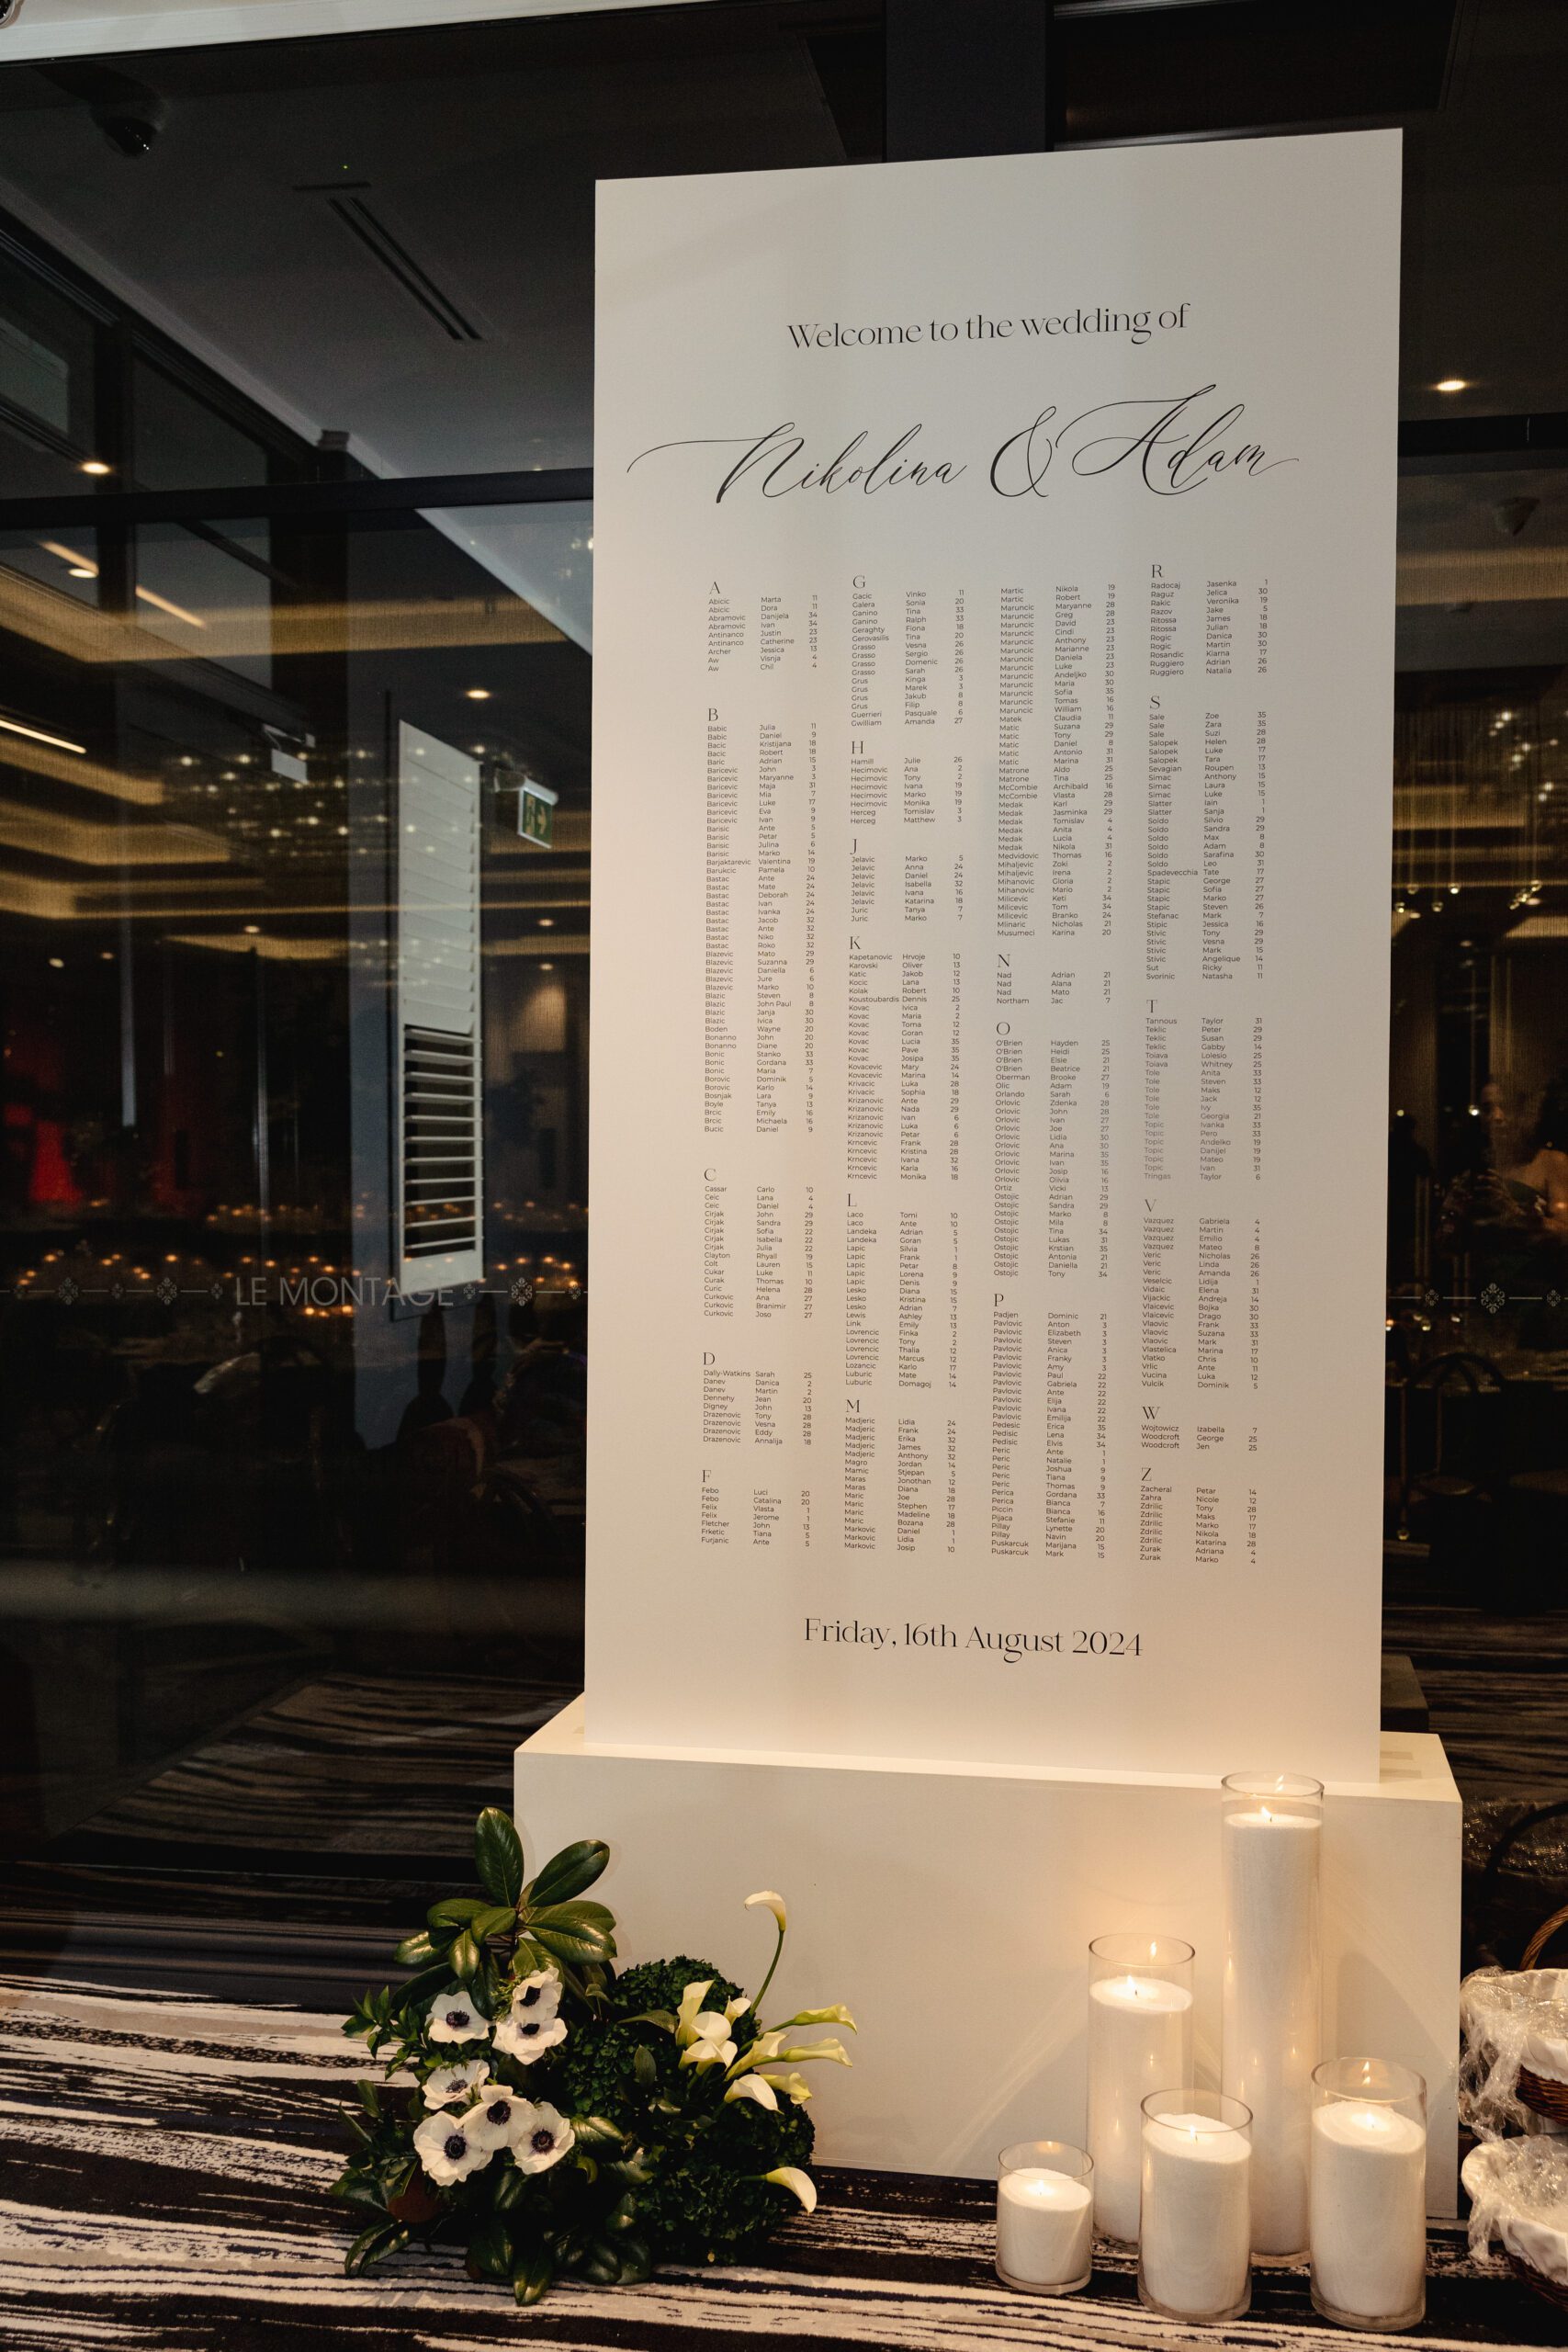 Welcome to the wedding of
Nikolina & Adam
A
Abicic Marta 11
Abicic Dora 11
Abramovic Danijela 34
Abramovic Ivan 34
Antinanco Justin 23
Antinanco Catherine 23
Archer Jessica 13
Aw Visnja 4
Aw Chil 4
B
Babic Julia 11
Babic Daniel 9
Bacic Kristijana 18
Bacic Robert 18
Baric Adrian 15
Baricevic John 3
Baricevic Maryanne 3
Baricevic Maja 31
Baricevic Mia 7
Baricevic Luke 17
Baricevic Eva 9
Baricevic Ivan 9
Barisic Ante 5
Barisic Petar 5
Barisic Julina 6
Barisic Marko 14
Barjaktarevic Valentina 19
Barukcic Pamela 10
Bastac Ante 24
Bastac Mate 24
Bastac Deborah 24
Bastac Ivan 24
Bastac Ivanka 24
Bastac Jacob 32
Bastac Ante 32
Bastac Niko 32
Bastac Roko 32
Blazevic Mato 29
Blazevic Suzanna 29
Blazevic Daniella 6
Blazevic Jure 6
Blazevic Marko 10
Blazic Steven 8
Blazic John Paul 8
Blazic Janja 30
Blazic Ivica 30
Boden Wayne 20
Bonanno John 20
Bonanno Diane 20
Bonic Stanko 33
Bonic Gordana 33
Bonic Maria 7
Borovic Dominik 5
Borovic Karlo 14
Bosnjak Lara 9
Boyle Tanya 13
Brcic Emily 16
Brcic Michaela 16
Bucic Daniel 9
C
Cassar Carlo 10
Ceic Lana 4
Ceic Daniel 4
Cirjak John 29
Cirjak Sandra 29
Cirjak Sofia 22
Cirjak Isabella 22
Cirjak Julia 22
Clayton Rhyall 19
Colt Lauren 15
Cukar Luke 11
Curak Thomas 10
Curic Helena 28
Curkovic Ana 27
Curkovic Branimir 27
Curkovic Joso 27
D
Dally-Watkins Sarah 25
Danev Danica 2
Danev Martin 2
Dennehy Jean 20
Digney John 13
Drazenovic Tony 28
Drazenovic Vesna 28
Drazenovic Eddy 28
Drazenovic Annalija 18
F
Febo Luci 20
Febo Catalina 20
Felix Vlasta 1
Felix Jerome 1
Fletcher John 13
Frketic Tiana 5
Furjanic Ante 5
G
Gacic Vinko 11
Galera Sonia 20
Ganino Tina 33
Ganino Ralph 33
Geraghty Fiona 18
Gerovasilis Tina 20
Grasso Vesna 26
Grasso Sergio 26
Grasso Domenic 26
Grasso Sarah 26
Grus Kinga 3
Grus Marek 3
Grus Jakub 8
Grus Filip 8
Guerreri Pasquale 6
Gwilliam Amanda 27
H
Hamill Julie 26
Hecimovic Ana 2
Hecimovic Tony 2
Hecimovic Ivana 19
Hecimovic Marko 19
Hecimovic Monika 19
Herceg Tomislav 3
Herceg Matthew 3
J
Jelavic Marko 5
Jelavic Anna 24
Jelavic Daniel 24
Jelavic Isabella 32
Jelavic Ivana 16
Jelavic Katarina 18
Juric Tanya 7
Juric Marko 7
K
Kapetanovic Hrvoje 10
Karovski Oliver 13
Katic Jakob 12
Kocic Lana 13
Kolak Robert 10
Koustoubardis Dennis 25
Kovac Ivica 2
Kovac Maria 2
Kovac Toma 12
Kovac Goran 12
Kovac Lucia 35
Kovac Pave 35
Kovac Josipa 35
Kovacevic Mary 24
Kovacevic Marina 14
Krivacic Luka 28
Krivacic Sophia 18
Krizanovic Ante 29
Krizanovic Nada 29
Krizanovic Ivan 6
Krizanovic Luka 6
Krizanovic Petar 6
Krncevic Frank 28
Krncevic Kristina 28
Krncevic Ivana 32
Krncevic Karla 16
Krncevic Monika 18
L
Laco Tomi 10
Laco Ante 10
Landeka Adrian 5
Landeka Goran 5
Lapic Silvia 1
Lapic Frank 1
Lapic Petar 8
Lapic Lorena 9
Lapic Denis 9
Lesko Diana 15
Lesko Kristina 15
Lesko Adrian 7
Lewis Ashley 13
Link Emily 13
Lovrencic Finka 2
Lovrencic Tony 2
Lovrencic Thalia 12
Lovrencic Marcus 12
Lozancic Karlo 17
Luburic Mate 14
Luburic Domagoj 14
M
Madjeric Lidia 24
Madjeric Frank 24
Madjeric Erika 32
Madjeric James 32
Madjeric Anthony 32
Magro Jordan 14
Mamic Stjepan 5
Maras Jonothan 12
Maras Diana 18
Maric Joe 28
Maric Stephen 17
Maric Madeline 18
Maric Bozana 28
Markovic Daniel 1
Markovic Lidia 1
Markovic Josip 10
Martic Nikola 19
Martic Robert 19
Maruncic Maryanne 28
Maruncic Greg 28
Maruncic David 23
Maruncic Cindi 23
Maruncic Anthony 23
Maruncic Marianne 23
Maruncic Daniela 23
Maruncic Luke 23
Maruncic Andeljko 30
Maruncic Maria 30
Maruncic Sofia 35
Maruncic Tomas 16
Maruncic William 16
Matek Claudia 11
Matic Suzana 29
Matic Tony 29
Matic Daniel 8
Matic Antonio 31
Matic Marina 31
Matrone Aldo 25
Matrone Tina 25
McCombie Archibald 16
McCombie Vlasta 28
Medak Karl 29
Medak Jasminka 29
Medak Tomislav 4
Medak Anita 4
Medak Lucia 4
Medak Nikola 31
Medvidovic Thomas 16
Mihaljevic Zoki 2
Mihaljevic Irena 2
Mihanovic Gloria 2
Mihanovic Mario 2
Milicevic Keti 34
Milicevic Tom 34
Milicevic Branko 24
Mlinaric Nicholas 21
Musumeci Karina 20
N
Nad Adrian 21
Nad Alana 21
Nad Mato 21
Northam Jac 7
O
O'Brien Hayden 25
O'Brien Heidi 25
O'Brien Elsie 21
O'Brien Beatrice 21
Oberman Brooke 27
Olic Adam 19
Orlando Sarah 6
Orlovic Zdenka 28
Orlovic John 28
Orlovic Ivan 27
Orlovic Joe 27
Orlovic Lidia 30
Orlovic Ana 30
Orlovic Marina 35
Orlovic Ivan 35
Orlovic Josip 16
Orlovic Olivia 16
Ortiz Vicki 13
Ostojic Adrian 29
Ostojic Sandra 29
Ostojic Marko 8
Ostojic Mila 8
Ostojic Tina 34
Ostojic Lukas 31
Ostojic Krstian 35
Ostojic Antonia 21
Ostojic Daniella 21
Ostojic Tony 34
P
Padjen Dominic 21
Pavlovic Anton 3
Pavlovic Elizabeth 3
Pavlovic Steven 3
Pavlovic Anica 3
Pavlovic Franky 3
Pavlovic Amy 3
Pavlovic Paul 22
Pavlovic Gabriela 22
Pavlovic Ante 22
Pavlovic Elija 22
Pavlovic Ivana 22
Pavlovic Emilija 22
Pedesic Erica 35
Pedisic Lena 34
Pedisic Elvis 34
Peric Ante 1
Peric Natalie 1
Peric Joshua 9
Peric Tiana 9
Peric Thomas 9
Perica Gordana 33
Perica Bianca 7
Piccin Bianca 16
Pijaca Stefanie 11
Pillay Lynette 20
Pillay Navin 20
Puskarcuk Marijana 15
Puskarcuk Mark 15
R
Radocaj Jasenka 1
Raguz Jelica 30
Rakic Veronika 19
Razov Jake 5
Ritossa James 18
Ritossa Julian 18
Rogic Danica 30
Rogic Martin 30
Rosandic Kiarna 17
Ruggiero Adrian 26
Ruggiero Natalia 26
S
Sale Zoe 35
Sale Zara 35
Sale Suzi 28
Salopek Helen 28
Salopek Luke 17
Salopek Tara 17
Sevagian Roupen 13
Simac Anthony 15
Simac Laura 15
Simac Luke 15
Slatter Iain 1
Slatter Sanja 1
Soldo Silvio 29
Soldo Sandra 29
Soldo Max 8
Soldo Adam 8
Soldo Sarafina 30
Soldo Leo 31
Spadevecchia Tate 17
Stapic George 27
Stapic Sofia 27
Stapic Marko 27
Stapic Steven 26
Stefanac Mark 7
Stipic Jessica 16
Stivic Tony 29
Stivic Vesna 29
Stivic Mark 15
Stivic Angelique 14
Sut Ricky 11
Svorinic Natasha 11
T
Tannous Taylor 31
Teklic Peter 29
Teklic Susan 29
Teklic Gabby 14
Toiava Lolesio 25
Toiava Whitney 25
Tole Anita 33
Tole Steven 33
Tole Maks 12
Tole Jack 12
Tole Ivy 35
Tole Georgia 21
Topic Ivanka 33
Topic Pero 33
Topic Andelko 19
Topic Danijel 19
Topic Mateo 19
Topic Ivan 31
Tringas Taylor 6
V
Vazquez Gabriela 4
Vazquez Martin 4
Vazquez Emilio 4
Vazquez Mateo 8
Veric Nicholas 26
Veric Linda 26
Veric Amanda 26
Veselcic Lidija 1
Vidaic Elena 31
Vijackic Andreja 14
Vlaicevic Bojka 30
Vlaicevic Drago 30
Vlaovic Frank 33
Vlaovic Suzana 33
Vlaovic Mark 31
Vlastelica Marina 17
Vlatko Chris 10
Vrlic Ante 11
Vucina Luka 12
Vulcik Dominik 5
W
Wojtowicz Izabella 7
Woodcroft George 25
Woodcroft Jen 25
Z
Zacheral Petar 14
Zahra Nicole 12
Zdrilic Tony 28
Zdrilic Maks 17
Zdrilic Marko 17
Zdrilic Nikola 18
Zdrilic Katarina 28
Zurak Adriana 4
Zurak Marko 4
Friday, 16th August 2024
LE MONTAGE